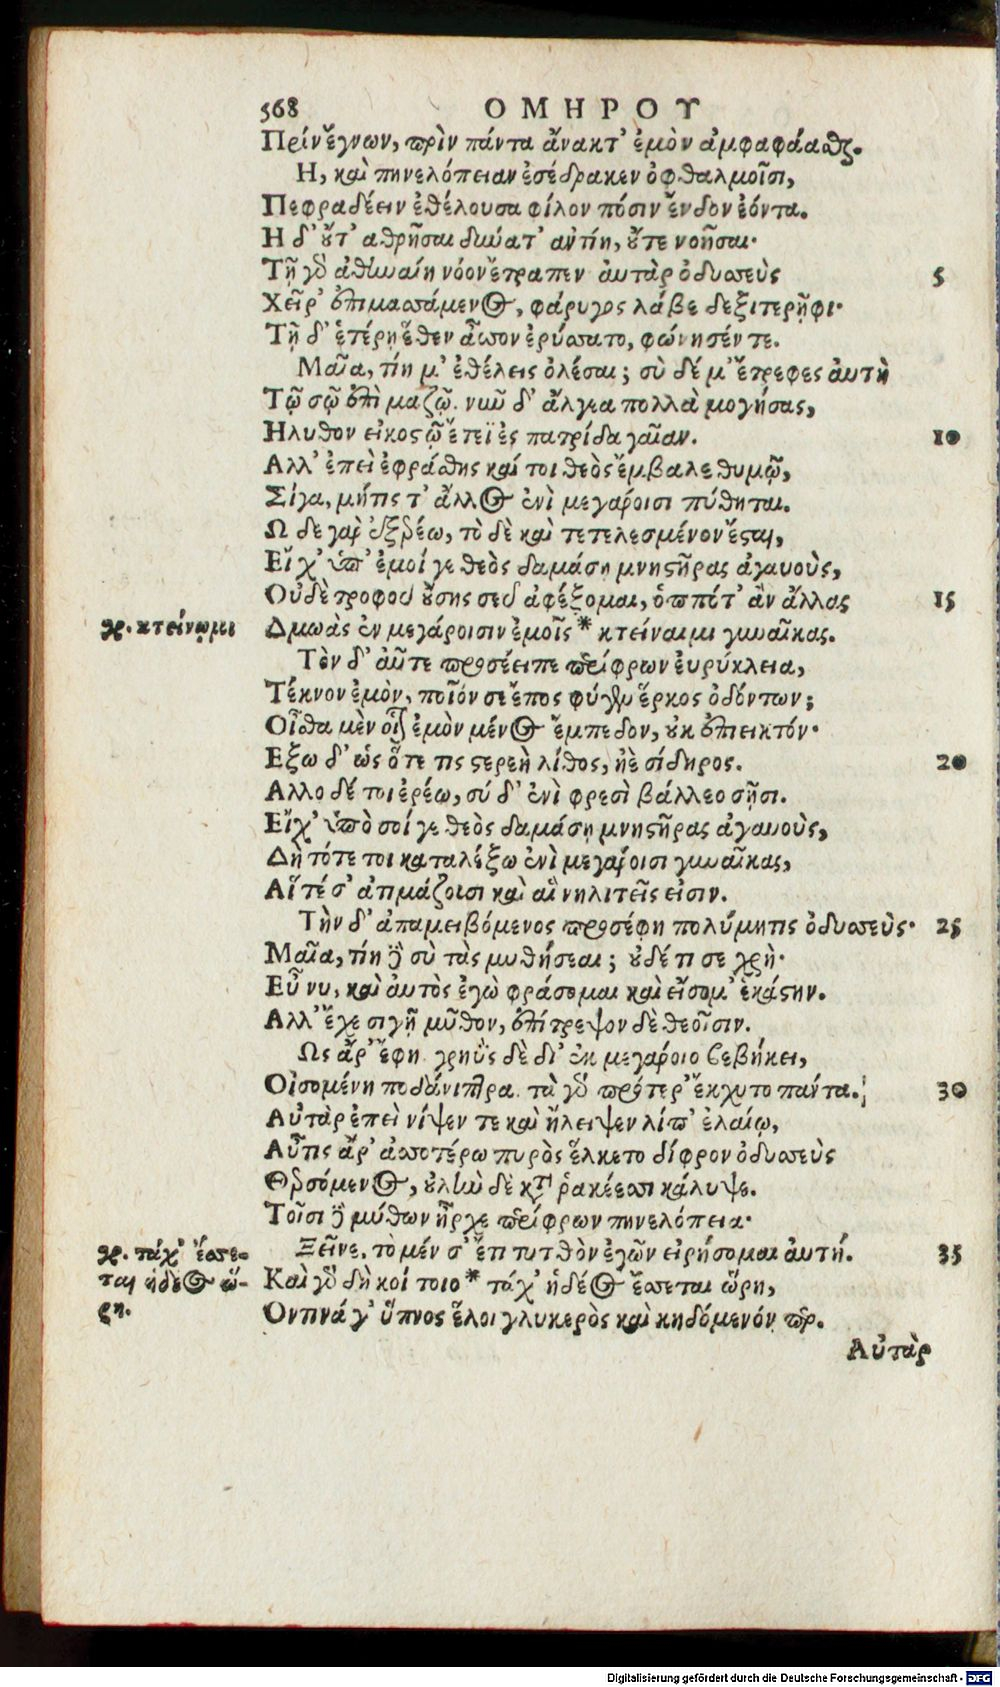 568 ΟΜΗΡΟΥ
Πρίν ἔγνων, πρὶν πάντα ἄνακτ' ἐμὸν ἀμφαφάασθαι.
Η, καὶ πηνελόπειαν ἐσέδρακεν ὀφθαλμοῖσι,
Πεφραδέειν ἐθέλουσα φίλον πόσιν ἔνδον ἐόντα.
Η δ' οὔτ' αθρῆσαι δυνατ' αντίη, οὔτε νοῆσαι·
Τῇ γὸ ἀθηναίη νόον ἔτραπεν ἀυτὰρ ὀδυσσεὺς 5
Χεῖρ' ἐπιμασσάμενος, φάρυγος λάβε δεξιτερῇφι·
Τῇ δ' ἑτέρῃ ἕθεν ἆσσον ἐρύσσατο, φώνησέν τε.
Μαῖα, τίη μ' ἐθέλεις ὀλέσαι; σὺ δέ μ' ἔτρεφες ἀυτὴ
Τῷ σῷ ἐπὶ μαζῷ. νῦν δ' ἄλγεα πολλὰ μογήσας,
Ηλυθον εἰκοστῷ ἔτεϊ ἐς πατρίδα γαῖαν. 10
Αλλ' ἐπεὶ ἐφράσθης καί τοι θεὸς ἔμβαλε θυμῷ,
Σίγα, μήτις τ' ἄλλος ἐνὶ μεγάροισι πύθηται.
Ω δε γαρ ἐξερέω, τὸ δὲ καὶ τετελεσμένον ἔσται,
Εἴ χ' ὑπ' ἐμοί γε θεὸς δαμάσῃ μνηστῆρας ἀγαυοὺς,
Οὐδὲ τροφοῦ οὔσης σεῦ ἀφέξομαι, ὁππότ' ἂν ἄλλας 15
γρ. κτείνωμι Δμωὰς ἐν μεγάροισιν ἐμοῖς * κτείναιμι γυναῖκας.
Τὸν δ' αὖτε προσέειπε περίφρων ἐυρύκλεια,
Τέκνον ἐμὸν, ποῖόν σε ἔπος φύγεν ἕρκος ὀδόντων;
Οἶσθα μὲν οἷον ἐμὸν μένος ἔμπεδον, οὐκ ἐπιεικτόν·
Εξω δ' ὡς ὅτε τις στερεὴ λίθος, ἠὲ σίδηρος. 20
Αλλο δέ τοι ἐρέω, σύ δ' ἐνὶ φρεσὶ βάλλεο σῇσι.
Εἴ χ' ὑπὸ σοί γε θεὸς δαμάσῃ μνηστῆρας ἀγαυοὺς,
Δὴ τότε τοι καταλέξω ἐνὶ μεγάροισι γυναῖκας,
Αἵ τέ σ' ἀτιμάζοισι καὶ αἳ νηλιτεῖς εἰσιν.
Τὴν δ' ἀπαμειβόμενος προσέφη πολύμητις ὀδυσσεὺς· 25
Μαῖα, τίη δὲ σὺ τὰς μυθήσεαι; οὐδέ τι σε χρὴ·
Εὖ νυ, καὶ ἀυτὸς ἐγὼ φράσομαι καὶ εἴσομ' ἑκάστην.
Αλλ' ἔχε σιγῇ μῦθον, ἐπίτρεψον δὲ θεοῖσιν.
Ως ἄρ' ἔφη. γρηῢς δὲ δι' ἐκ μεγάροιο βεβήκει,
Οἰσομένη ποδάνιπτρα. τὰ γὸ πρότερ' ἔκχυτο πάντα. 30
Αὐτὰρ ἐπεὶ νίψεν τε καὶ ἤλειψεν λίπ' ἐλαίῳ,
Αὖτις ἄρ' ἀσσοτέρω πυρὸς ἕλκετο δίφρον ὀδυσσεὺς
Θερσόμενος, οὐλὴν δὲ κατὰ ῥακέεσσι κάλυψε.
Τοῖσι δὲ μύθων ἦρχε περίφρων πηνελόπεια·
γρ. τάχ' ἔσσε- Ξεῖνε, τὸ μέν σ' ἔτι τυτθὸν ἐγῶν εἰρήσομαι ἀυτή. 35
ται ἡδέος ὥ- Καὶ γὸ δὴ κοί τοιο * τάχ' ἡδέος ἔσσεται ὥρη,
ρη. Οντινά γ' ὕπνος ἕλοι γλυκερὸς καὶ κηδόμενόν περ.
Αὐτὰρ
Digitalisierung gefördert durch die Deutsche Forschungsgemeinschaft - DFG